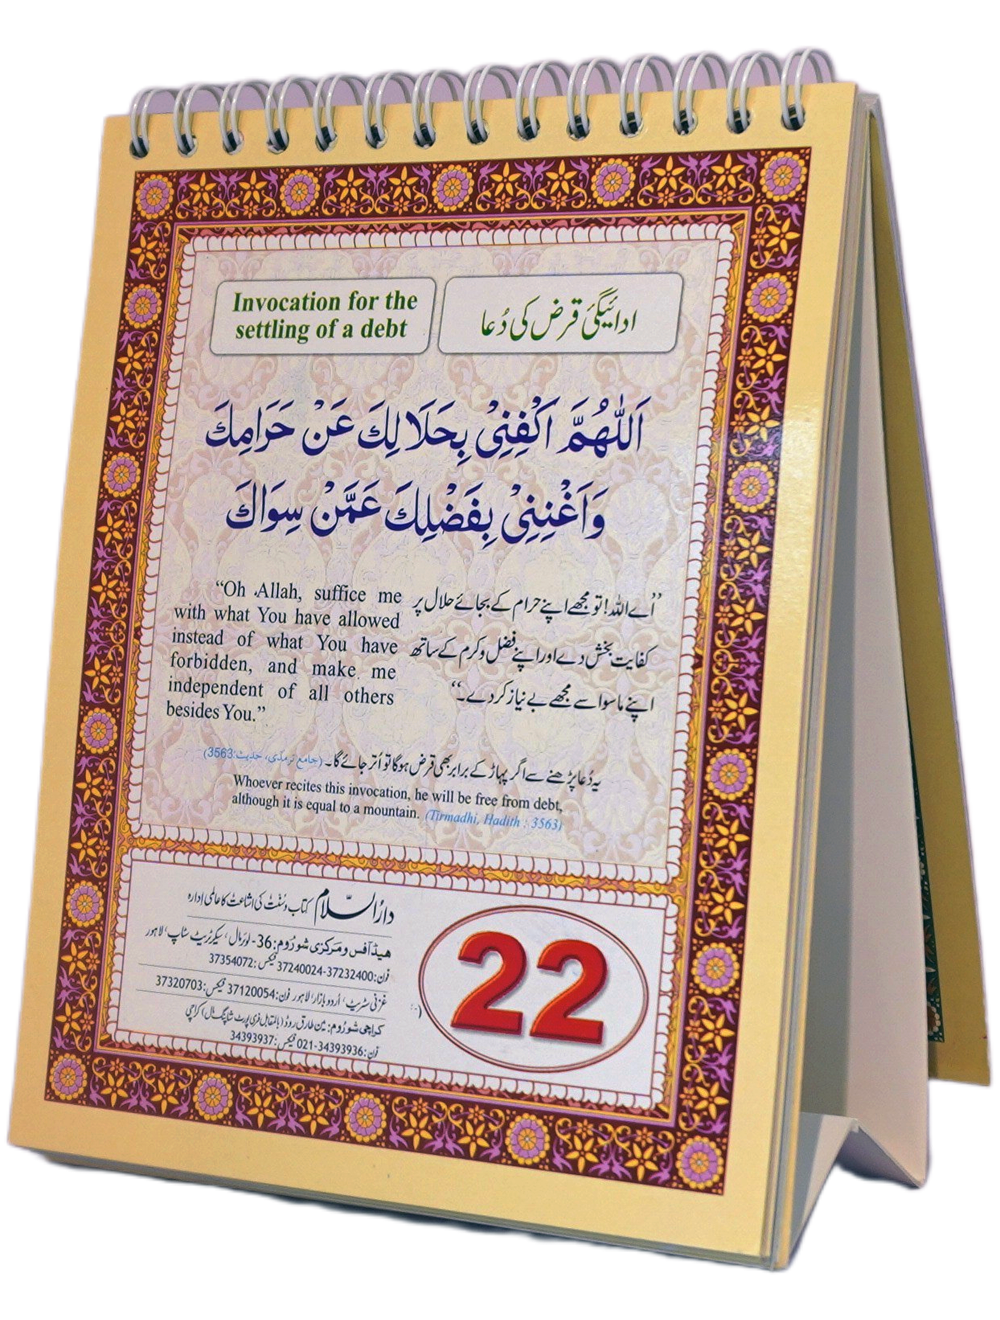 Invocation for the
settling of a debt
ادائیگیٔ قرض کی دُعا
اَللّٰهُمَّ اكْفِنِيْ بِحَلَالِكَ عَنْ حَرَامِكَ
وَاَغْنِنِيْ بِفَضْلِكَ عَمَّنْ سِوَاكَ
“Oh Allah, suffice me
with what You have allowed
instead of what You have
forbidden, and make me
independent of all others
besides You.”
’’اے اللہ! تو مجھے اپنے حرام کے بجائے حلال پر
کفایت بخش دے اور اپنے فضل و کرم کے ساتھ
اپنے ماسوا سے مجھے بے نیاز کر دے۔‘‘
یہ دُعا پڑھنے سے اگر پہاڑ کے برابر بھی قرض ہوگا تو اُتر جائے گا۔ (جامع ترمذی، حدیث:3563)
Whoever recites this invocation, he will be free from debt,
although it is equal to a mountain. (Tirmadhi, Hadith : 3563)
دارُالسّلام کتاب و سُنّت کی اشاعت کا عالمی ادارہ
ھیڈ آفس و مرکزی شورُوم: 36- لوئرمال، سیکرٹریٹ سٹاپ، لاہور
فون: 37232400-37240024 فیکس: 37354072
غزنی سٹریٹ، اُردو بازار، لاہور فون: 37120054 فیکس: 37320703
کراچی شورُوم: مین طارق روڈ (بالمقابل فری پورٹ شاپنگ مال) کراچی
فون: 021-34393936 فیکس: 34393937
22